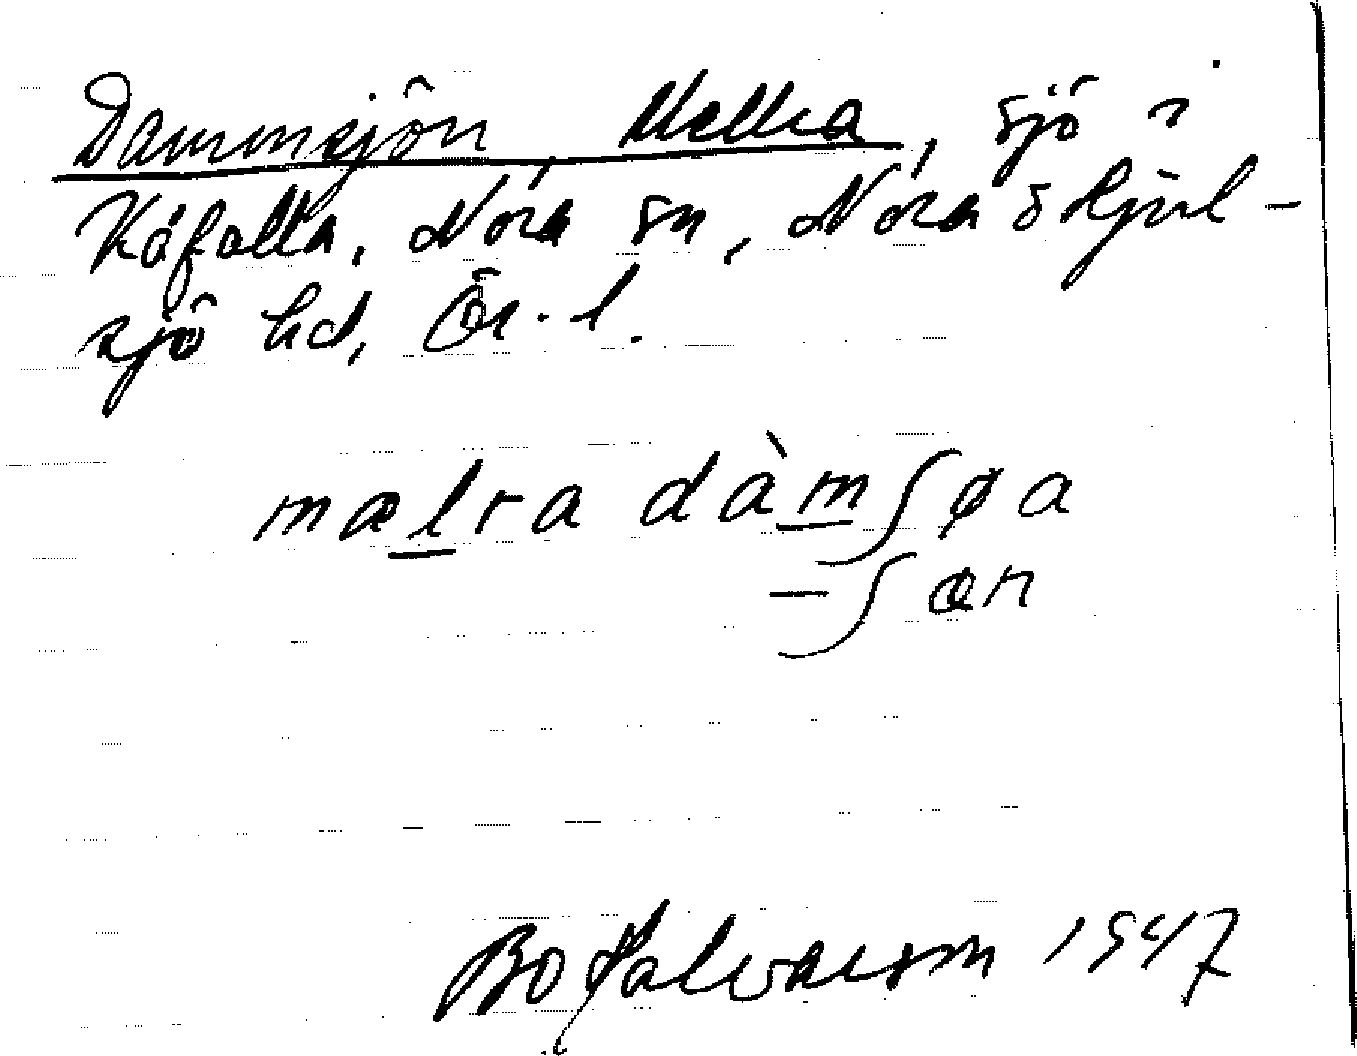 Dammsjön, Mellra, sjö i
Kåfalla, Nora sn, Nora o Hjul-
sjö hd, Ör. l.
mælra dàmʃøa
– ʃøn
Bo Halvarson 1947